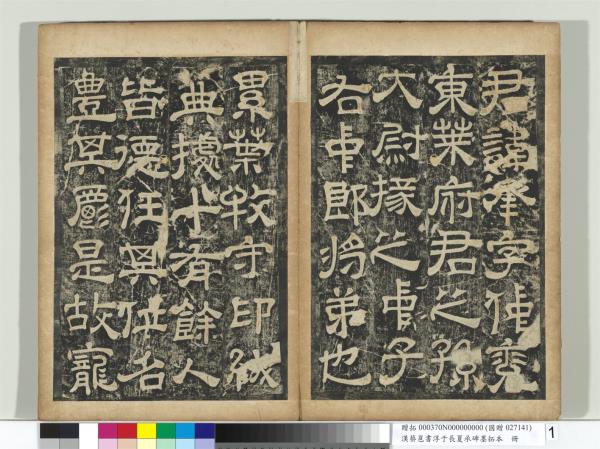 君諱承字仲兖
東萊府君之孫
大尉掾之中子
右中郎將弟也
累葉牧守印紱
典據十有餘人
皆德任其位名
豊其爵是故寵
贈拓 000370N000000000 (國贈 027141)
漢蔡邕書淳于長夏承碑墨拓本 冊
1